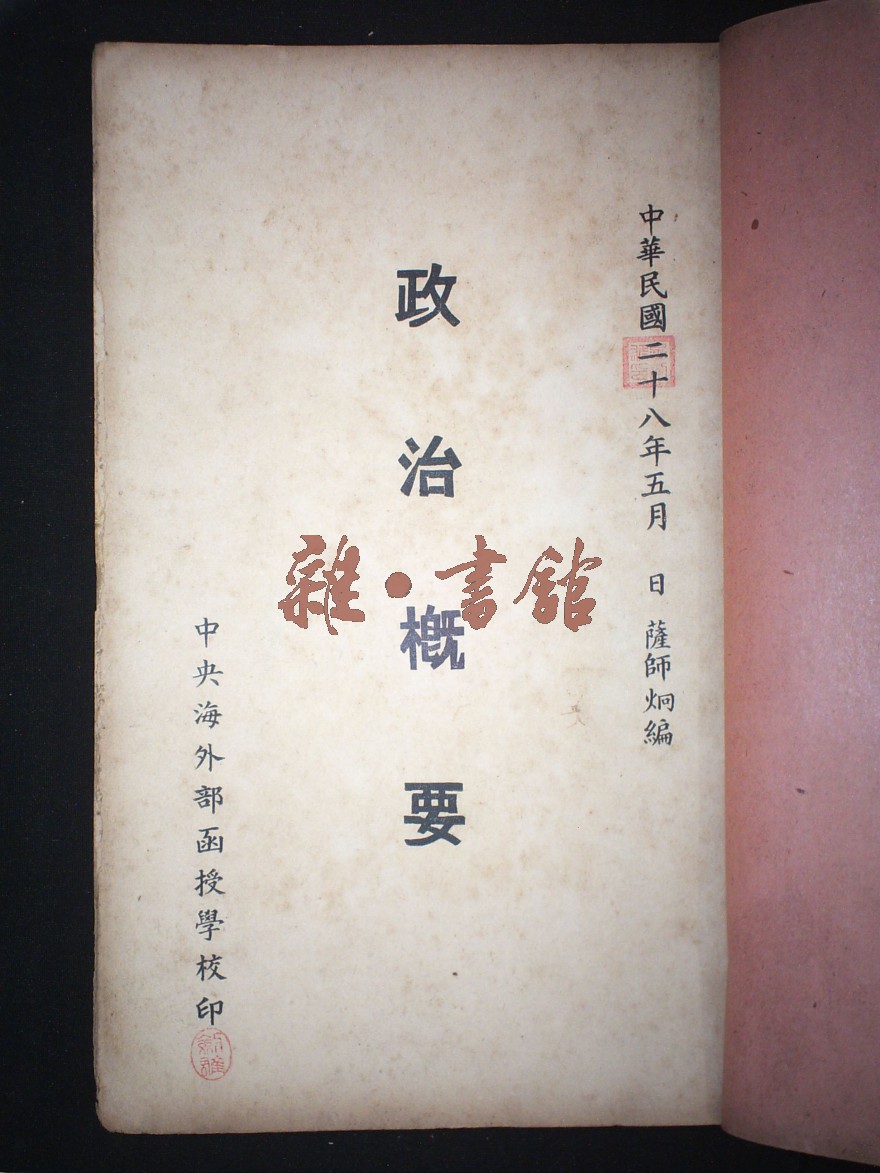 中華民國二十八年五月　日　薩師炯編
政治概要
中央海外部函授學校印
雜·書館